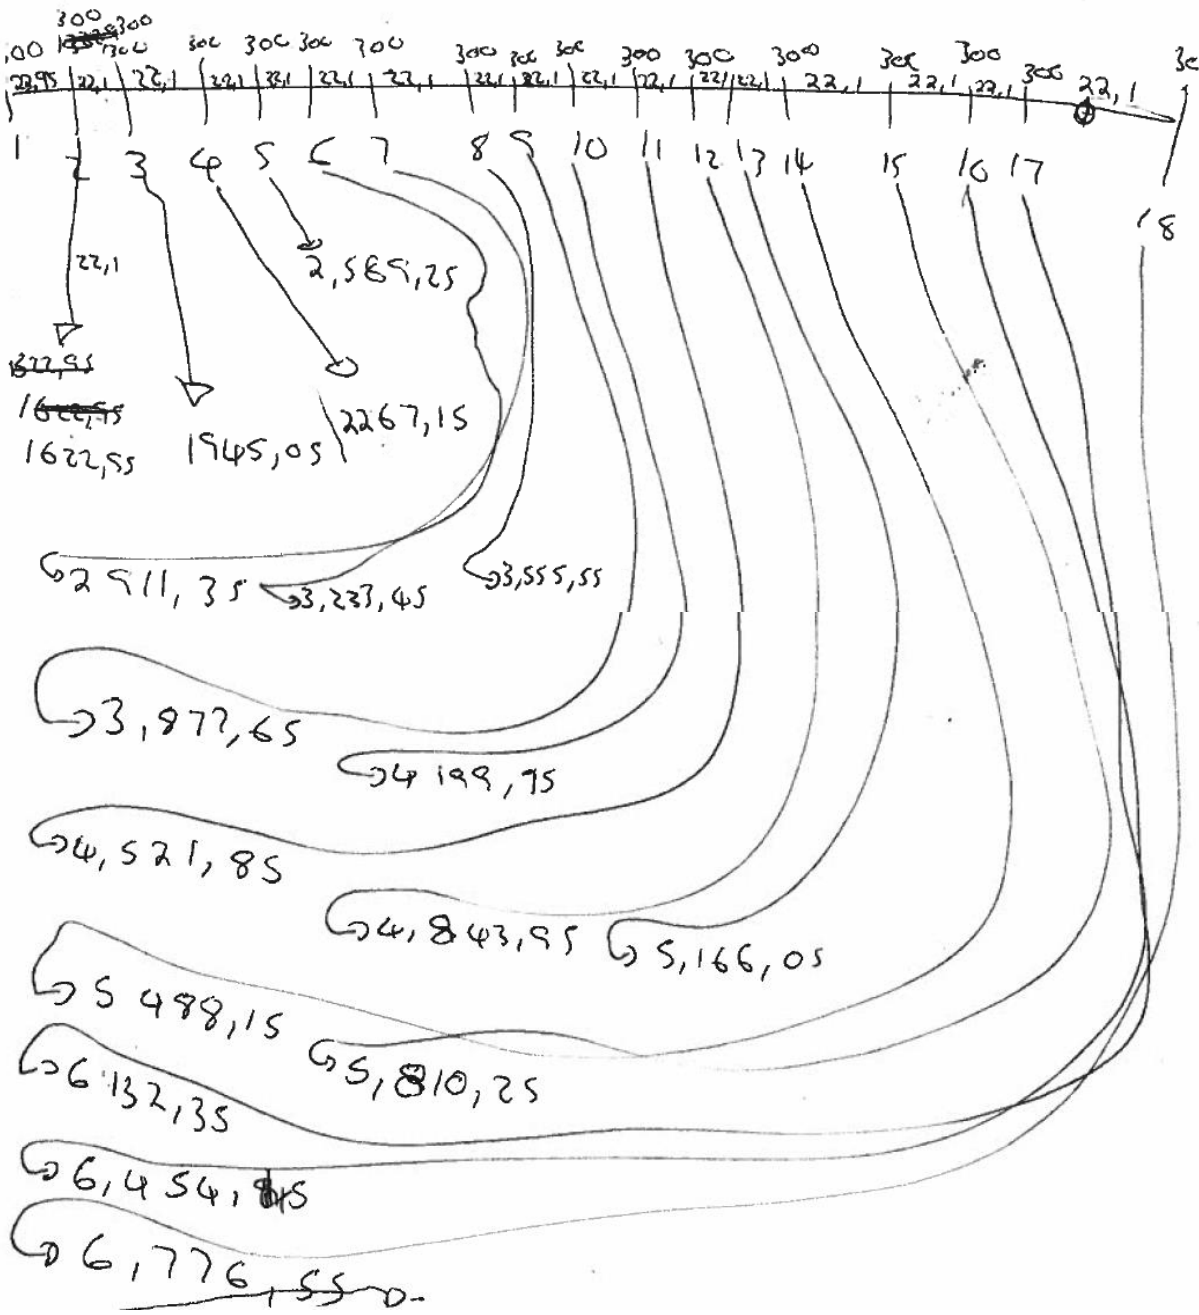 300
,00 300 300 300 300 300 300 300 300 300 300 300 300 300 300 300 30
22,95 22,1 22,1 22,1 22,1 22,1 22,1 22,1 22,1 22,1 22,1 22,1 22,1 22,1 22,1 22,1 22,1
1 2 3 4 5 6 7 8 9 10 11 12 13 14 15 16 17 18
22,1
2,589,25
1622,95 1945,05 2267,15
2911,35 3,233,45 3,555,55
3,877,65
4199,75
4,521,85
4,843,95 5,166,05
5488,15
5,810,25
6132,35
6,454,45
6,776,55